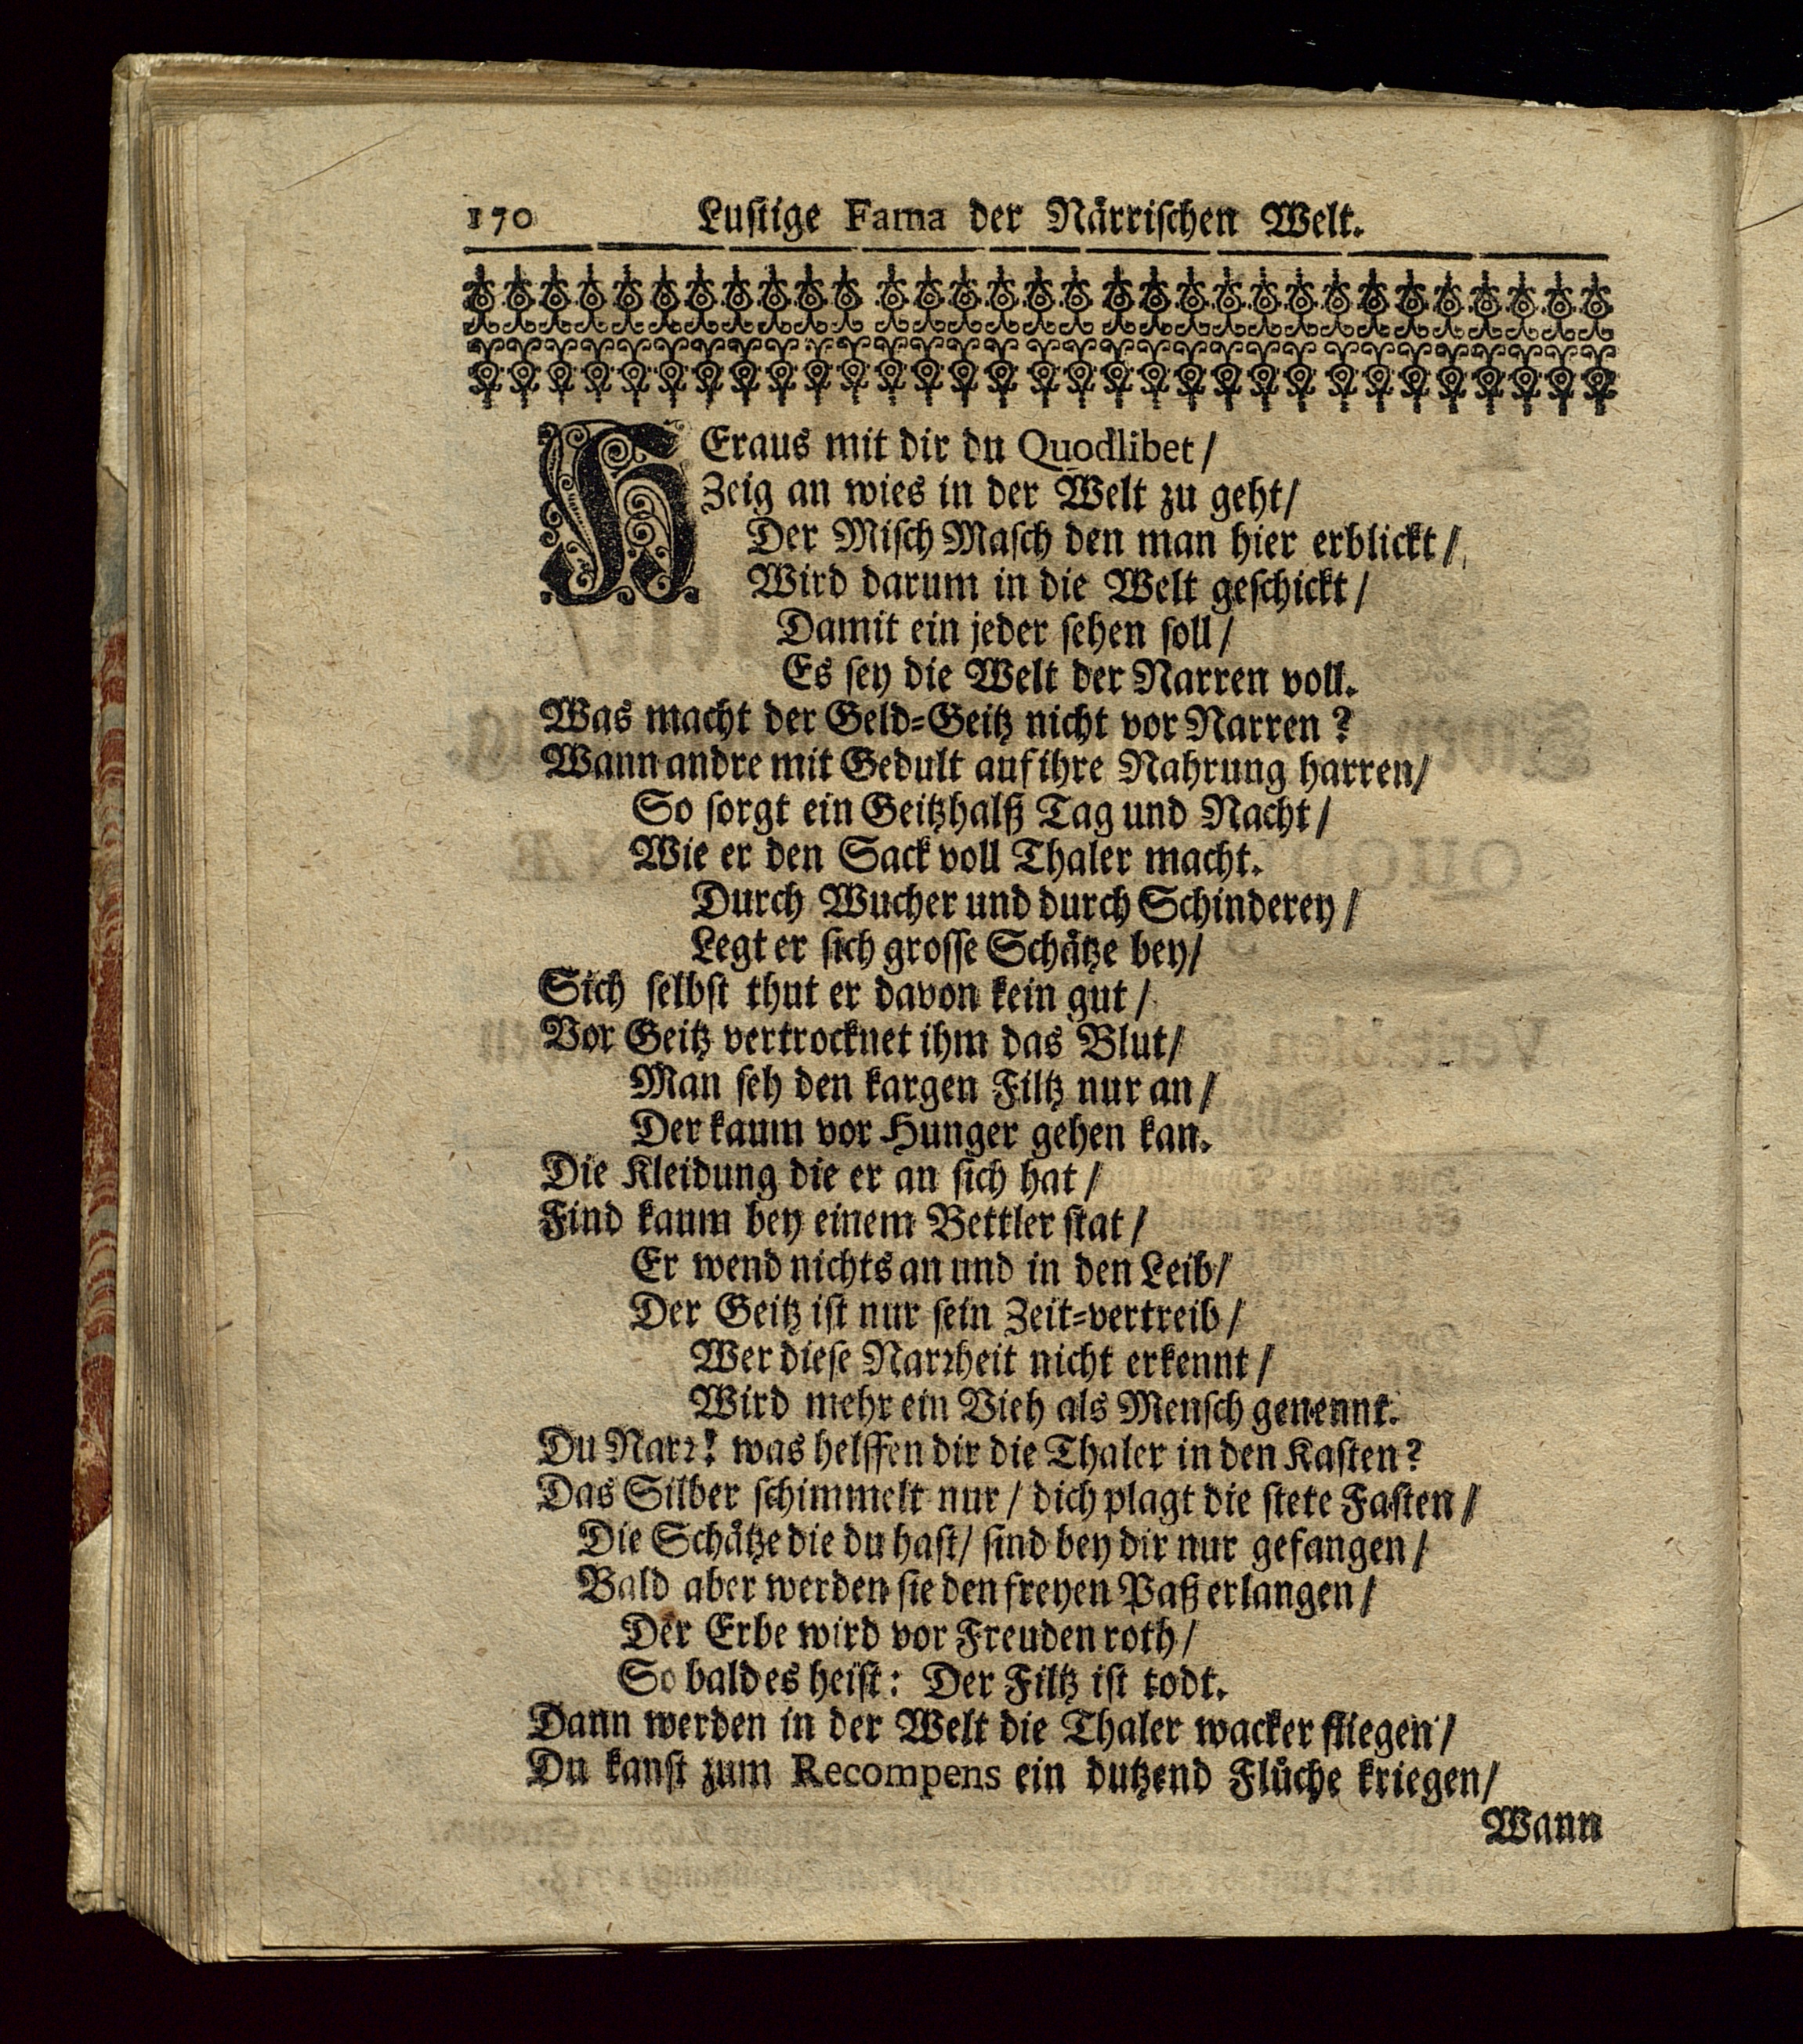 170 Lustige Fama der Närrischen Welt.
HEraus mit dir du Quodlibet/
Zeig an wies in der Welt zu geht/
Der Misch Masch den man hier erblickt/
Wird darum in die Welt geschickt/
Damit ein jeder sehen soll/
Es sey die Welt der Narren voll.
Was macht der Geld-Geitz nicht vor Narren?
Wann andre mit Gedult auf ihre Nahrung harren/
So sorgt ein Geitzhalß Tag und Nacht/
Wie er den Sack voll Thaler macht.
Durch Wucher und durch Schinderey/
Legt er sich grosse Schätze bey/
Sich selbst thut er davon kein gut/
Vor Geitz vertrocknet ihm das Blut/
Man seh den kargen Filtz nur an/
Der kaum vor Hunger gehen kan.
Die Kleidung die er an sich hat/
Find kaum bey einem Bettler stat/
Er wend nichts an und in den Leib/
Der Geitz ist nur sein Zeit-vertreib/
Wer diese Narrheit nicht erkennt/
Wird mehr ein Vieh als Mensch genennt.
Du Narr! was helffen dir die Thaler in den Kasten?
Das Silber schimmelt nur/ dich plagt die stete Fasten/
Die Schätze die du hast/ sind bey dir nur gefangen/
Bald aber werden sie den freyen Paß erlangen/
Der Erbe wird vor Freuden roth/
So bald es heist: Der Filtz ist todt.
Dann werden in der Welt die Thaler wacker fliegen/
Du kanst zum Recompens ein dutzend Flüche kriegen/
Wann